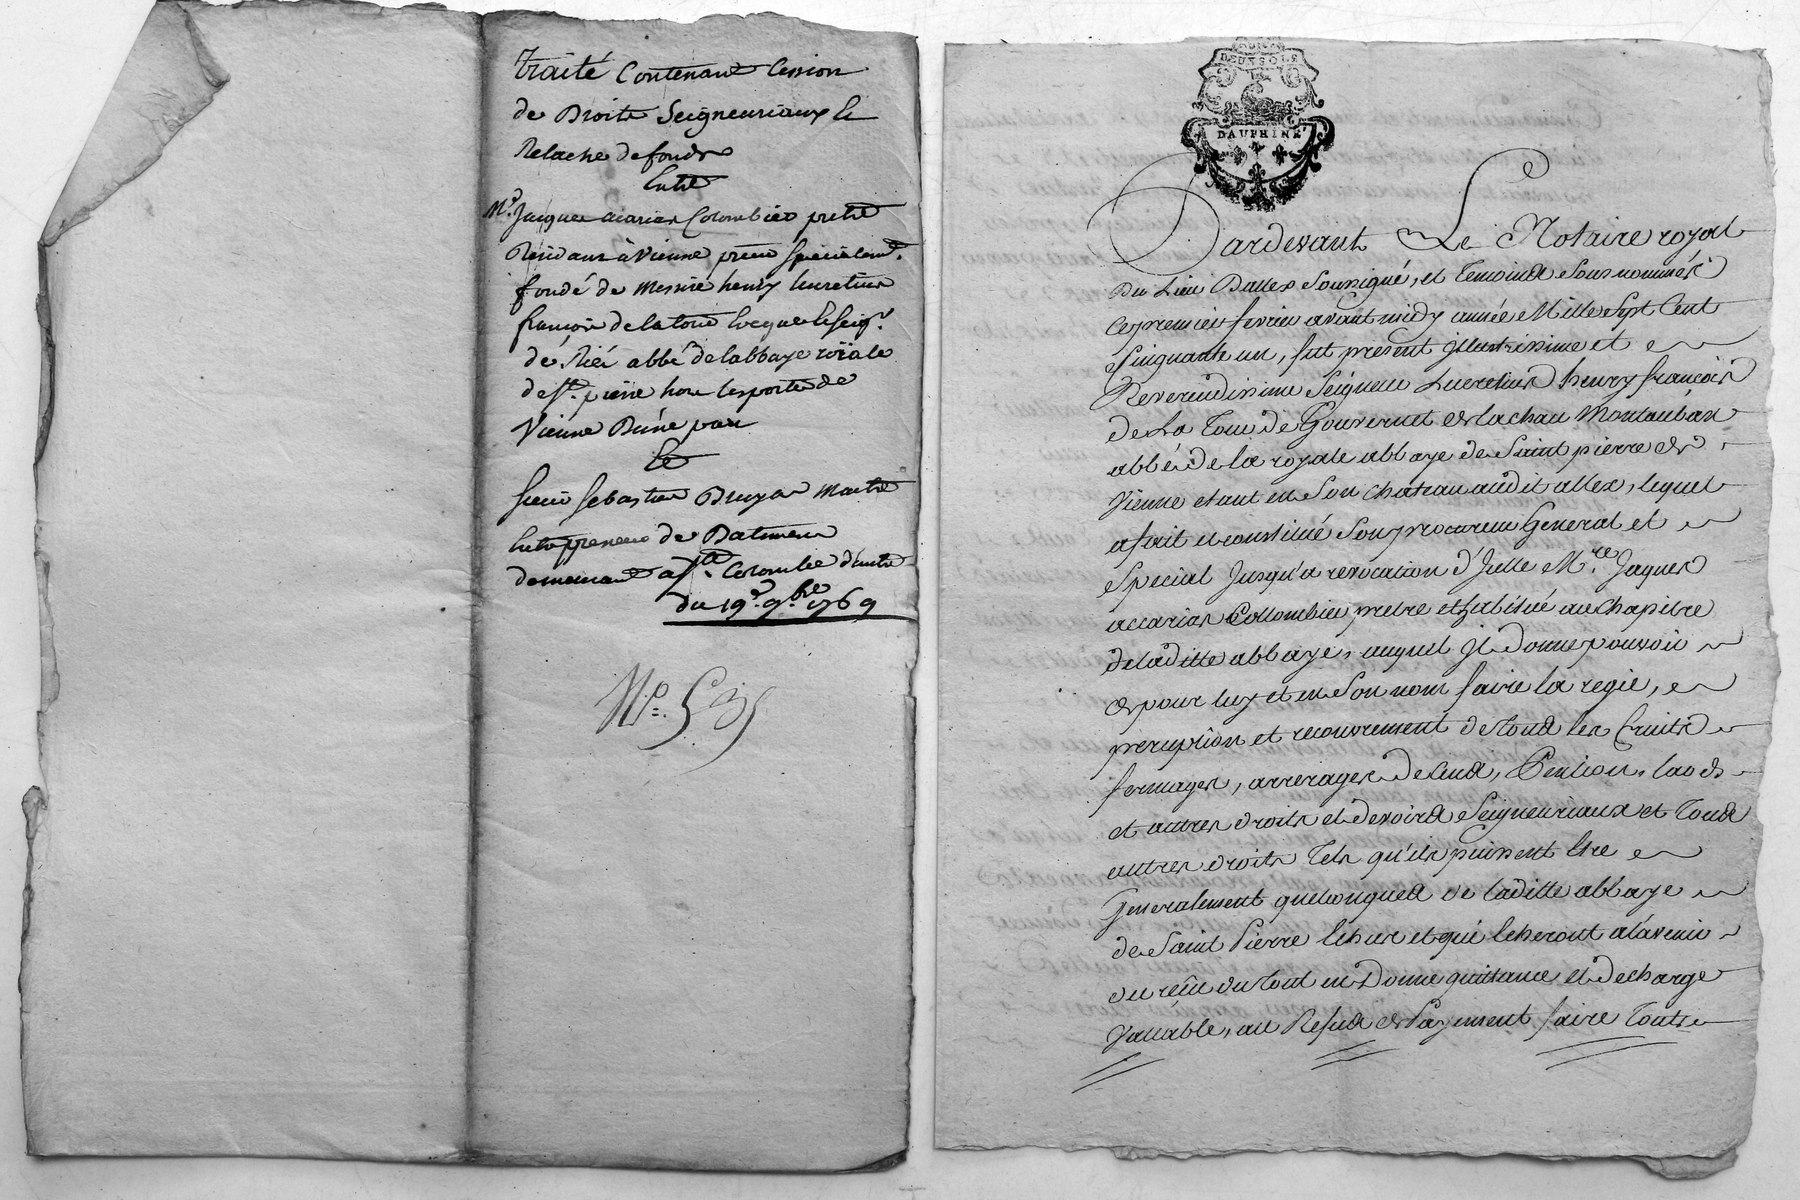 traité Contenant Cession
de Droits Seigneuriaux et
Relache de fonds
Entre
Mre. Jacques accarias Colombier pretre
Residant à Vienne specialemt.
fondé de Messire henry lucretius
françois de la tour Evequeseigr.
de Riés abbé de labbaye roïale
de St. pierre hors les portes de
Vienne Dune part
Et
Sieur Sebastien Maitre
Entrepreneur de Batimens
demeurant a Ste. Colombe d'autre
du 19e. 9bre 1769
No.
DEUX SOLS
DAUPHINÉ
Pardevant Le Notaire royal
Du Lieu Dallex Soussigné, et Temoins Sous nommés
Ce premier fevrier avant midy année Mille Sept Cent
Cinquante un, fut present jllustrissime et
Reverendissime Seigneur Lucretius henry françois
de La Tour de Gouvernet de lachau Montauban
abbé de la royale abbaye de Saint pierre de
Vienne etant en Son chateau audit allex, lequel
a fait et constitué Son procureur General et
Special Jusqu'a revocation d'Jcelle Mre. Jaques
accarias Collombier pretre et habitué au Chapitre
de laditte abbaye, auquel Jl donne pouvoir
de pour luy et en Son nom faire la regie,
perception et recouvrement de tous les fruits
fermages, arrerages de Cens, Pention, laods
et autres droits et devoirs Seigneuriaux et Tous
autres droits Tels qu'ils puissent Etre
Generalement quelconques de laditte abbaye
de Saint Pierre Echus et qui Echeront à l'avenir
du reçu du tout en Donner quittance et decharge
Vallable, au Refus de Payement faire Toutes